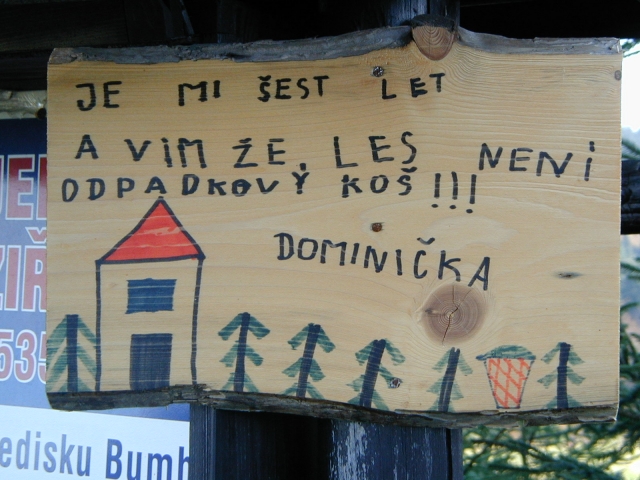 JE MI ŠEST LET
A VÍM ŽE, LES NENÍ
ODPADKOVÝ KOŠ!!!
DOMINIČKA
535
edisku Bumb